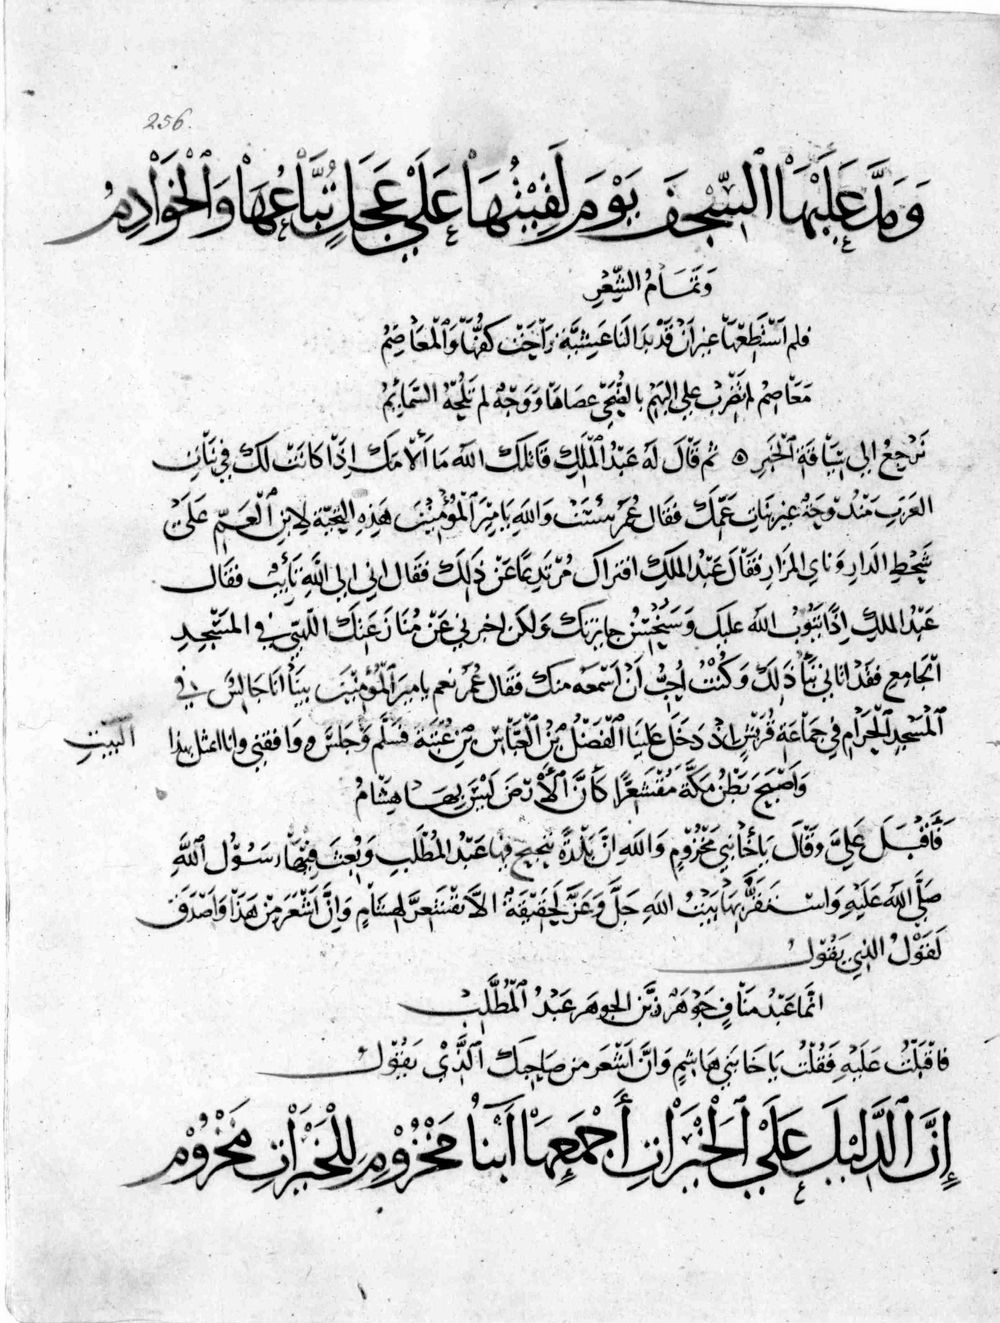 256
وَمَدَّ عَلَيْهَا السِّجْفَ يَوْمَ لَقِيْتُهَا عَلَى عَجَلٍ تُبَّاعُهَا وَالْخَوَادِمُ
وَتَمَامُ الشِّعْرِ
فلم أستطعها غير أن قد بدا لنا عشية راحت كفها والمعاصم
معاصم لم تضرب على البهم بالضحى عصاها ووجه لم تلحه السمائم
نرجع الى سياقة الخبر ثم قال له عبد الملك قاتلك الله ما ألأمك اذا كانت لك في بنات
العرب مندوحة عن بنات عمك فقال عمر بئست والله يا مير المؤمنين هذه التحية لابن العم على
شحط الدار وناي المزار فقال عبد الملك افتراك مرتدعا عن ذلك فقال اني الى الله تايب فقال
عبد الملك اذا يتوب الله عليك وسنحسن جايزتك ولكن اخبرني عن منازعتك اللهبي في المسجد
الجامع فقد اتاني نبأ ذلك وكنت أحب أن أسمعه منك فقال عمر نعم يا مير المؤمنين بينا أنا جالس في
المسجد الحرام في جماعة قريش اذ دخل علينا الفضل بن العباس بن عتبة فسلم وجلس ووافقني وانا اتمثل بهذا البيت
واصبح بطن مكة مقشعرا كأن الأرض ليس بها هشام
فأقبل علي وقال يا أخا بني مخزوم والله ان بلدة تبحبح فيها عبد المطلب وبعث فيها رسول الله
صلى الله عليه واستقر بها بيت الله جل وعز لحقيقة الا تقشعر لهشام وان اشعر من هذا واصدق
لقول الذي يقول
انما عبد مناف جوهر زين الجوهر عبد المطلب
فاقبلت عليه فقلت يا خا بني هاشم وان اشعر من صاحبك الذي يقول
إِنَّ الدَّلِيْلَ عَلَى الْخَيْرَاتِ أَجْمَعِهَا أَبْنَاءُ مَخْزُوْمٍ لِلْخَيْرَاتِ مَخْزُوْمُ